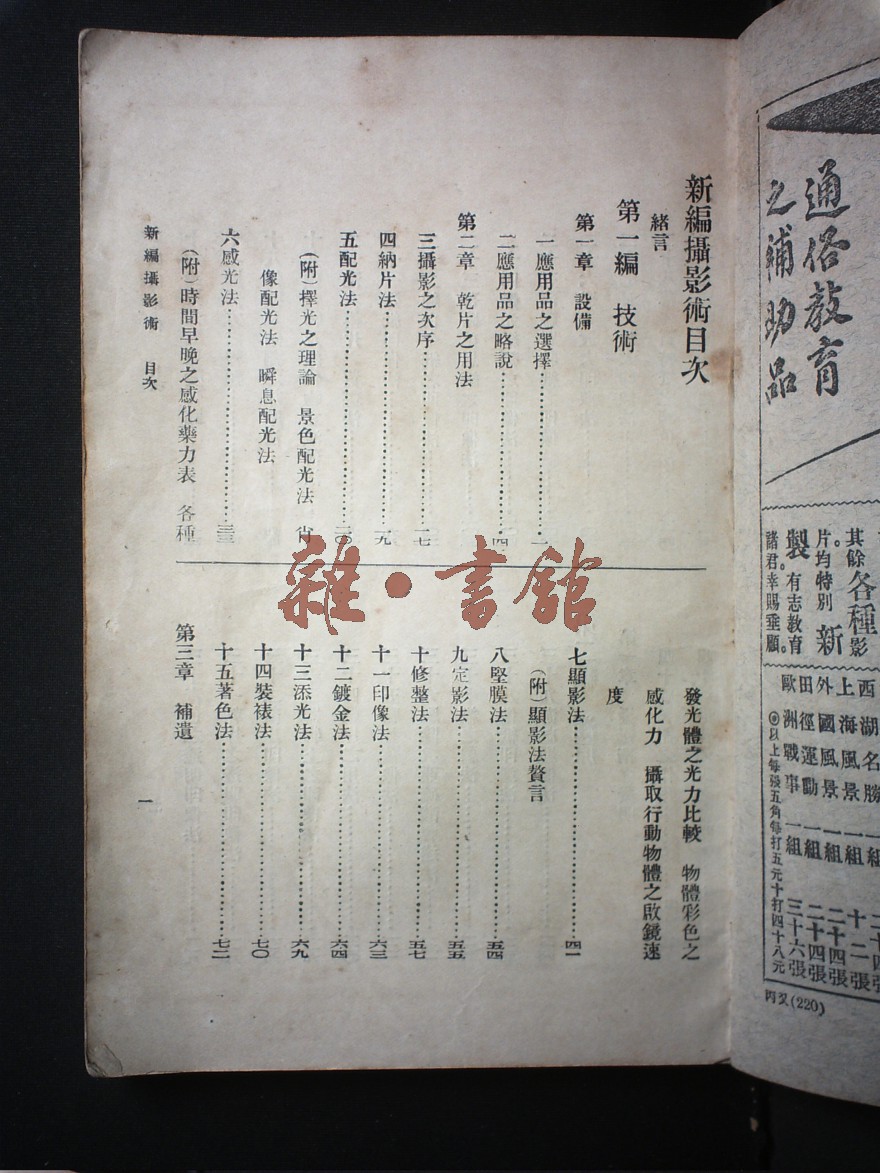 新編攝影術目次
緒言
第一編　技術
第一章　設備
一應用品之選擇……一
二應用品之略說……四
第二章　乾片之用法
三攝影之次序……一七
四納片法……一九
五配光法……二〇
(附)擇光之理論　景色配光法　肖
像配光法　瞬息配光法
六感光法……三三
(附)時間早晚之感化藥力表　各種
發光體之光力比較　物體彩色之
感化力　攝取行動物體之啟鏡速
度
七顯影法……四一
(附)顯影法贅言
八堅膜法……五四
九定影法……五五
十修整法……五七
十一印像法……六三
十二鍍金法……六四
十三添光法……六九
十四裝裱法……七〇
十五著色法……七二
第三章　補遺
新編攝影術　目次
一
雜·書館
通俗教育
之補助品
其餘各種影
片均特別新
製。有志教育
諸君幸賜垂顧。
西湖名勝　一組　二十四張
上海風景　一組　十二張
外國風景　一組　二十四張
田徑運動　一組　二十四張
歐洲戰事　一組　三十六張
◎以上每張五角每打五元十打四十八元
丙又(220)